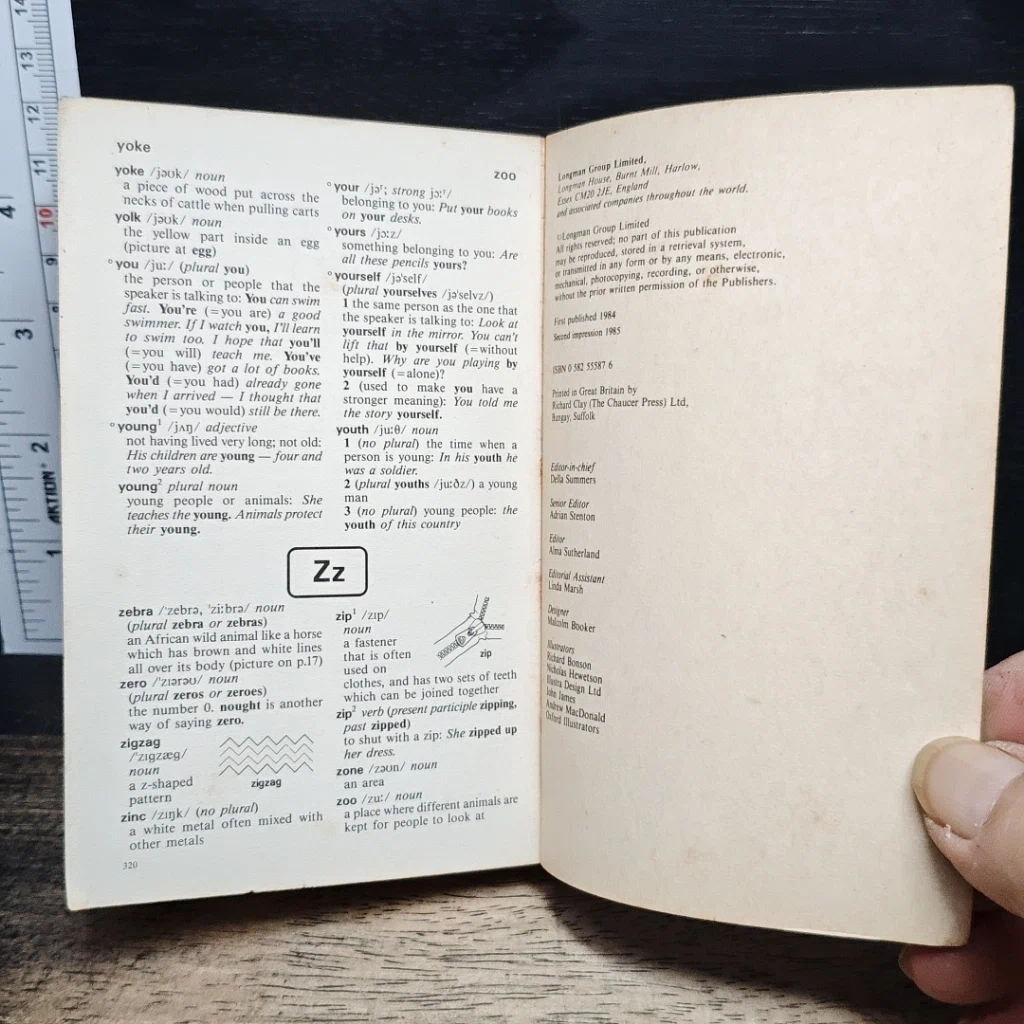 14
13
12
11
10
9
4
3
2
1
AKTION
yoke
zoo
yoke /jəʊk/ noun
a piece of wood put across the
necks of cattle when pulling carts
yolk /jəʊk/ noun
the yellow part inside an egg
(picture at egg)
°you /juː/ (plural you)
the person or people that the
speaker is talking to: You can swim
fast. You're (=you are) a good
swimmer. If I watch you, I'll learn
to swim too. I hope that you'll
(=you will) teach me. You've
(=you have) got a lot of books.
You'd (=you had) already gone
when I arrived — I thought that
you'd (=you would) still be there.
°young¹ /jʌŋ/ adjective
not having lived very long; not old:
His children are young — four and
two years old.
young² plural noun
young people or animals: She
teaches the young. Animals protect
their young.
°your /jəʳ; strong jɔːʳ/
belonging to you: Put your books
on your desks.
°yours /jɔːz/
something belonging to you: Are
all these pencils yours?
°yourself /jəˈself/
(plural yourselves /jəˈselvz/)
1 the same person as the one that
the speaker is talking to: Look at
yourself in the mirror. You can't
lift that by yourself (=without
help). Why are you playing by
yourself (=alone)?
2 (used to make you have a
stronger meaning): You told me
the story yourself.
youth /juːθ/ noun
1 (no plural) the time when a
person is young: In his youth he
was a soldier.
2 (plural youths /juːðz/) a young
man
3 (no plural) young people: the
youth of this country
Zz
zebra /ˈzebrə, ˈziːbrə/ noun
(plural zebra or zebras)
an African wild animal like a horse
which has brown and white lines
all over its body (picture on p.17)
zero /ˈzɪərəʊ/ noun
(plural zeros or zeroes)
the number 0. nought is another
way of saying zero.
zigzag
/ˈzɪgzæg/
noun
a z-shaped
pattern
zigzag
zinc /zɪŋk/ (no plural)
a white metal often mixed with
other metals
zip¹ /zɪp/
noun
a fastener
that is often
used on
clothes, and has two sets of teeth
which can be joined together
zip
zip² verb (present participle zipping,
past zipped)
to shut with a zip: She zipped up
her dress.
zone /zəʊn/ noun
an area
zoo /zuː/ noun
a place where different animals are
kept for people to look at
320
Longman Group Limited,
Longman House, Burnt Mill, Harlow,
Essex CM20 2JE, England
and associated companies throughout the world.
©Longman Group Limited
All rights reserved; no part of this publication
may be reproduced, stored in a retrieval system,
or transmitted in any form or by any means, electronic,
mechanical, photocopying, recording, or otherwise,
without the prior written permission of the Publishers.
First published 1984
Second impression 1985
ISBN 0 582 55587 6
Printed in Great Britain by
Richard Clay (The Chaucer Press) Ltd,
Bungay, Suffolk
Editor-in-chief
Della Summers
Senior Editor
Adrian Stenton
Editor
Alma Sutherland
Editorial Assistant
Linda Marsh
Designer
Malcolm Booker
Illustrators
Richard Bonson
Nicholas Hewetson
Illustra Design Ltd
John James
Andrew MacDonald
Oxford Illustrators